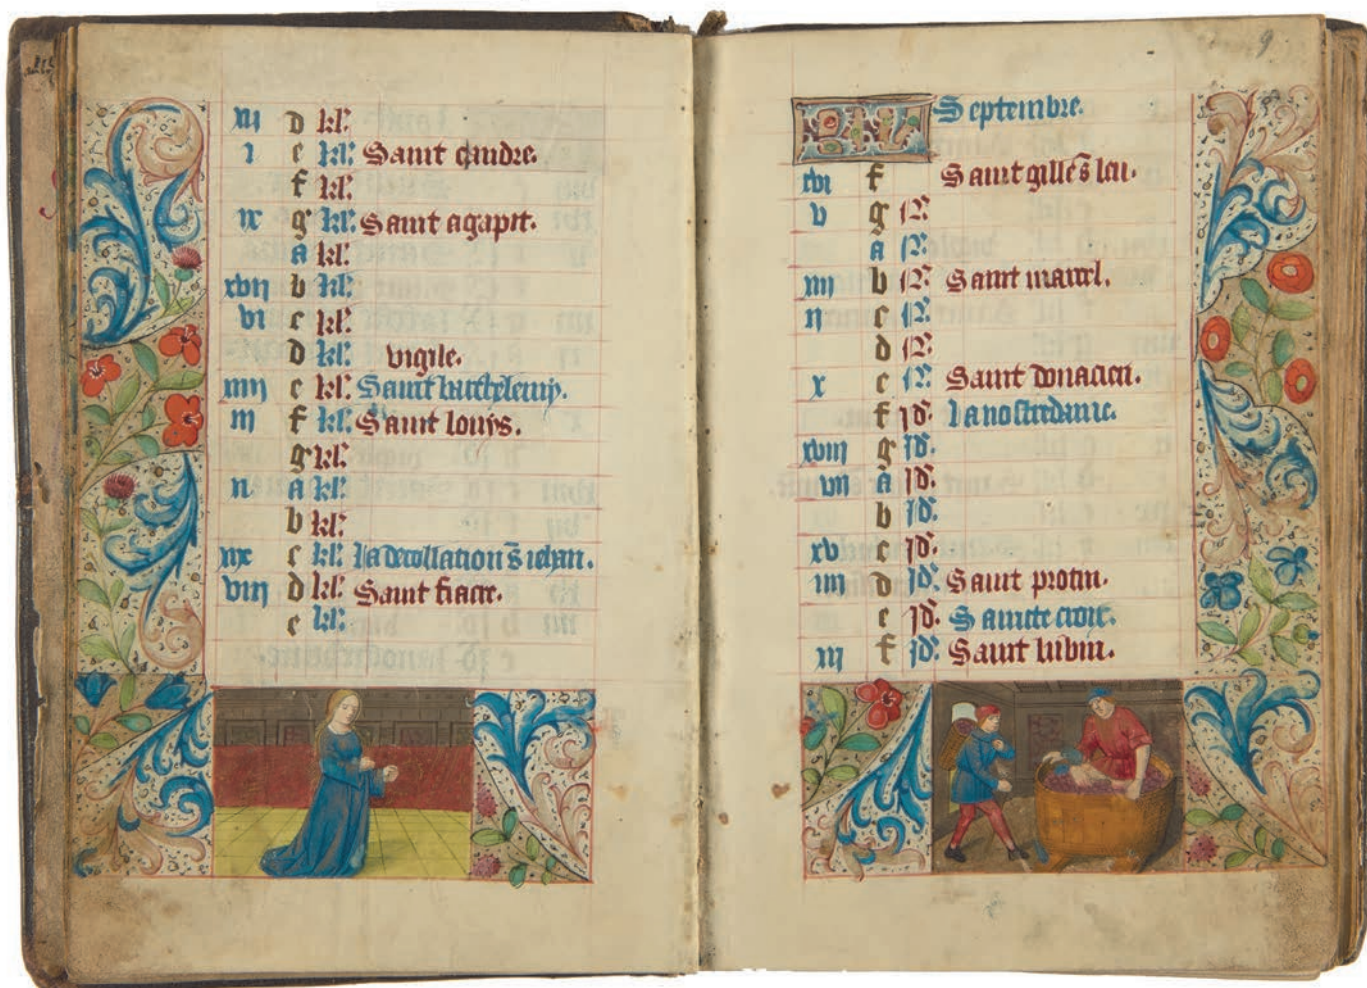 xij d kl'.
i e kl'. Saint candre.
f kl'.
ix g kl'. Saint agapit.
a kl'.
xvij b kl'.
vi c kl'.
d kl'. vigile.
xiiij e kl'. Saint berthelemy.
iij f kl'. Saint louys.
g kl'.
xi a kl'.
b kl'.
xix c kl'. la decollation s iehan.
viij d kl'. Saint fiacre.
e kl'.
9
KL Septembre.
xvi f Saint gille s leu.
v g N'.
a N'.
xiij b N'. Saint marcel.
ij c N'.
d N'.
x e N'. Saint donacien.
f id'. la nostre dame.
xviij g id'.
vij a id'.
b id'.
xv c id'.
iiij d id'. Saint protin.
e id'. Saincte croix.
xij f id'. Saint lubin.